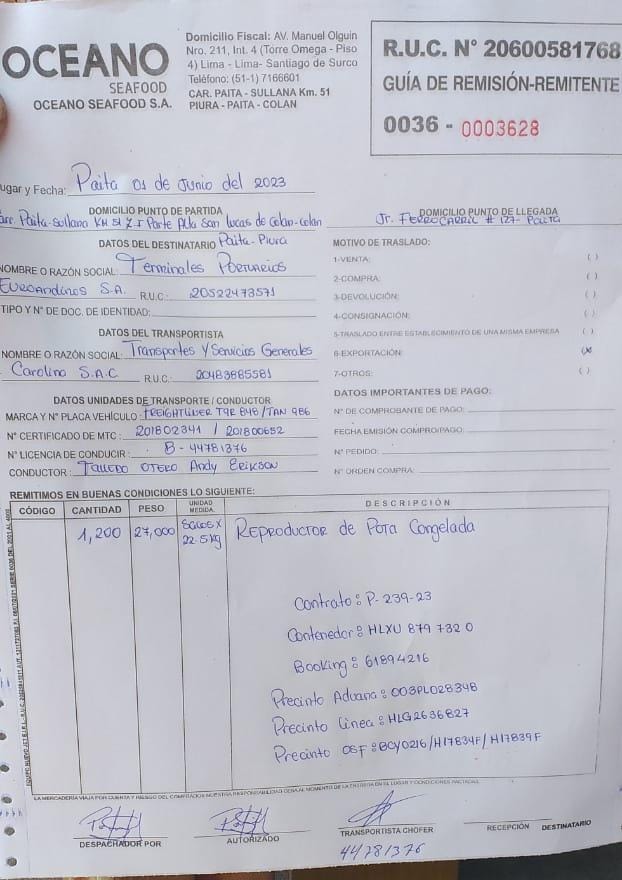 OCEANO
SEAFOOD
OCEANO SEAFOOD S.A.
Domicilio Fiscal: AV. Manuel Olguin
Nro. 211, Int. 4 (Torre Omega - Piso
4) Lima - Lima- Santiago de Surco
Teléfono: (51-1) 7166601
CAR. PAITA - SULLANA Km. 51
PIURA - PAITA - COLAN
R.U.C. N° 20600581768
GUÍA DE REMISIÓN-REMITENTE
0036 - 0003628
ugar y Fecha: Paita 01 de Junio del 2023
DOMICILIO PUNTO DE PARTIDA
Paita-Sullana KM 51 Z.I Parte Alta San Lucas de Colan-Colan
DATOS DEL DESTINATARIO Paita-Piura
NOMBRE O RAZÓN SOCIAL: Terminales Portuarios
Euroandinos S.A. R.U.C.: 20522473571
TIPO Y N° DE DOC. DE IDENTIDAD:
DATOS DEL TRANSPORTISTA
NOMBRE O RAZÓN SOCIAL: Transportes Y Servicios Generales
Carolino S.A.C R.U.C.: 20483885581
DATOS UNIDADES DE TRANSPORTE / CONDUCTOR
MARCA Y N° PLACA VEHÍCULO: FREIGHTLINER T9R 848 / TAN 986
N° CERTIFICADO DE MTC: 201802341 / 201800652
N° LICENCIA DE CONDUCIR: B - 44781376
CONDUCTOR: Talledo Otero Andy Erikson
DOMICILIO PUNTO DE LLEGADA
Jr. FERROCARRIL # 127- Paita
MOTIVO DE TRASLADO:
1-VENTA: ( )
2-COMPRA: ( )
3-DEVOLUCIÓN: ( )
4-CONSIGNACIÓN: ( )
5-TRASLADO ENTRE ESTABLECIMIENTO DE UNA MISMA EMPRESA ( )
6-EXPORTACIÓN: (X)
7-OTROS: ( )
DATOS IMPORTANTES DE PAGO:
N° DE COMPROBANTE DE PAGO:
FECHA EMISIÓN COMPRO/PAGO:
N° PEDIDO:
N° ORDEN COMPRA:
REMITIMOS EN BUENAS CONDICIONES LO SIGUIENTE:
CÓDIGO CANTIDAD PESO UNIDAD MEDIDA DESCRIPCIÓN
1,200 27,000 Sacos x 22.5 kg Reproductor de Pota Congelada
Contrato: P-239-23
Contenedor: HLXU 879 732 0
Booking: 61894216
Precinto Aduana: 003PL028348
Precinto Linea: HLG2636827
Precinto OSF: BCY0216/H17834F/H17839F
DESPACHADOR POR
AUTORIZADO
TRANSPORTISTA CHOFER
44781376
RECEPCIÓN DESTINATARIO